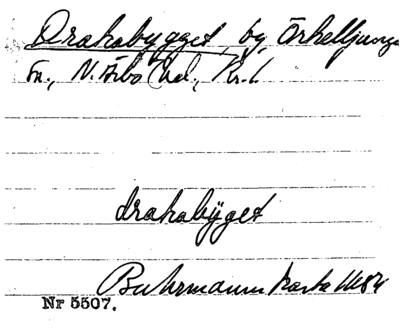 Drakabygget, by, Örkelljunga
sn., N. Åsbo hd., Kr. l.
drakabÿget
Buhrmanns karta 1684
Nr 5507.